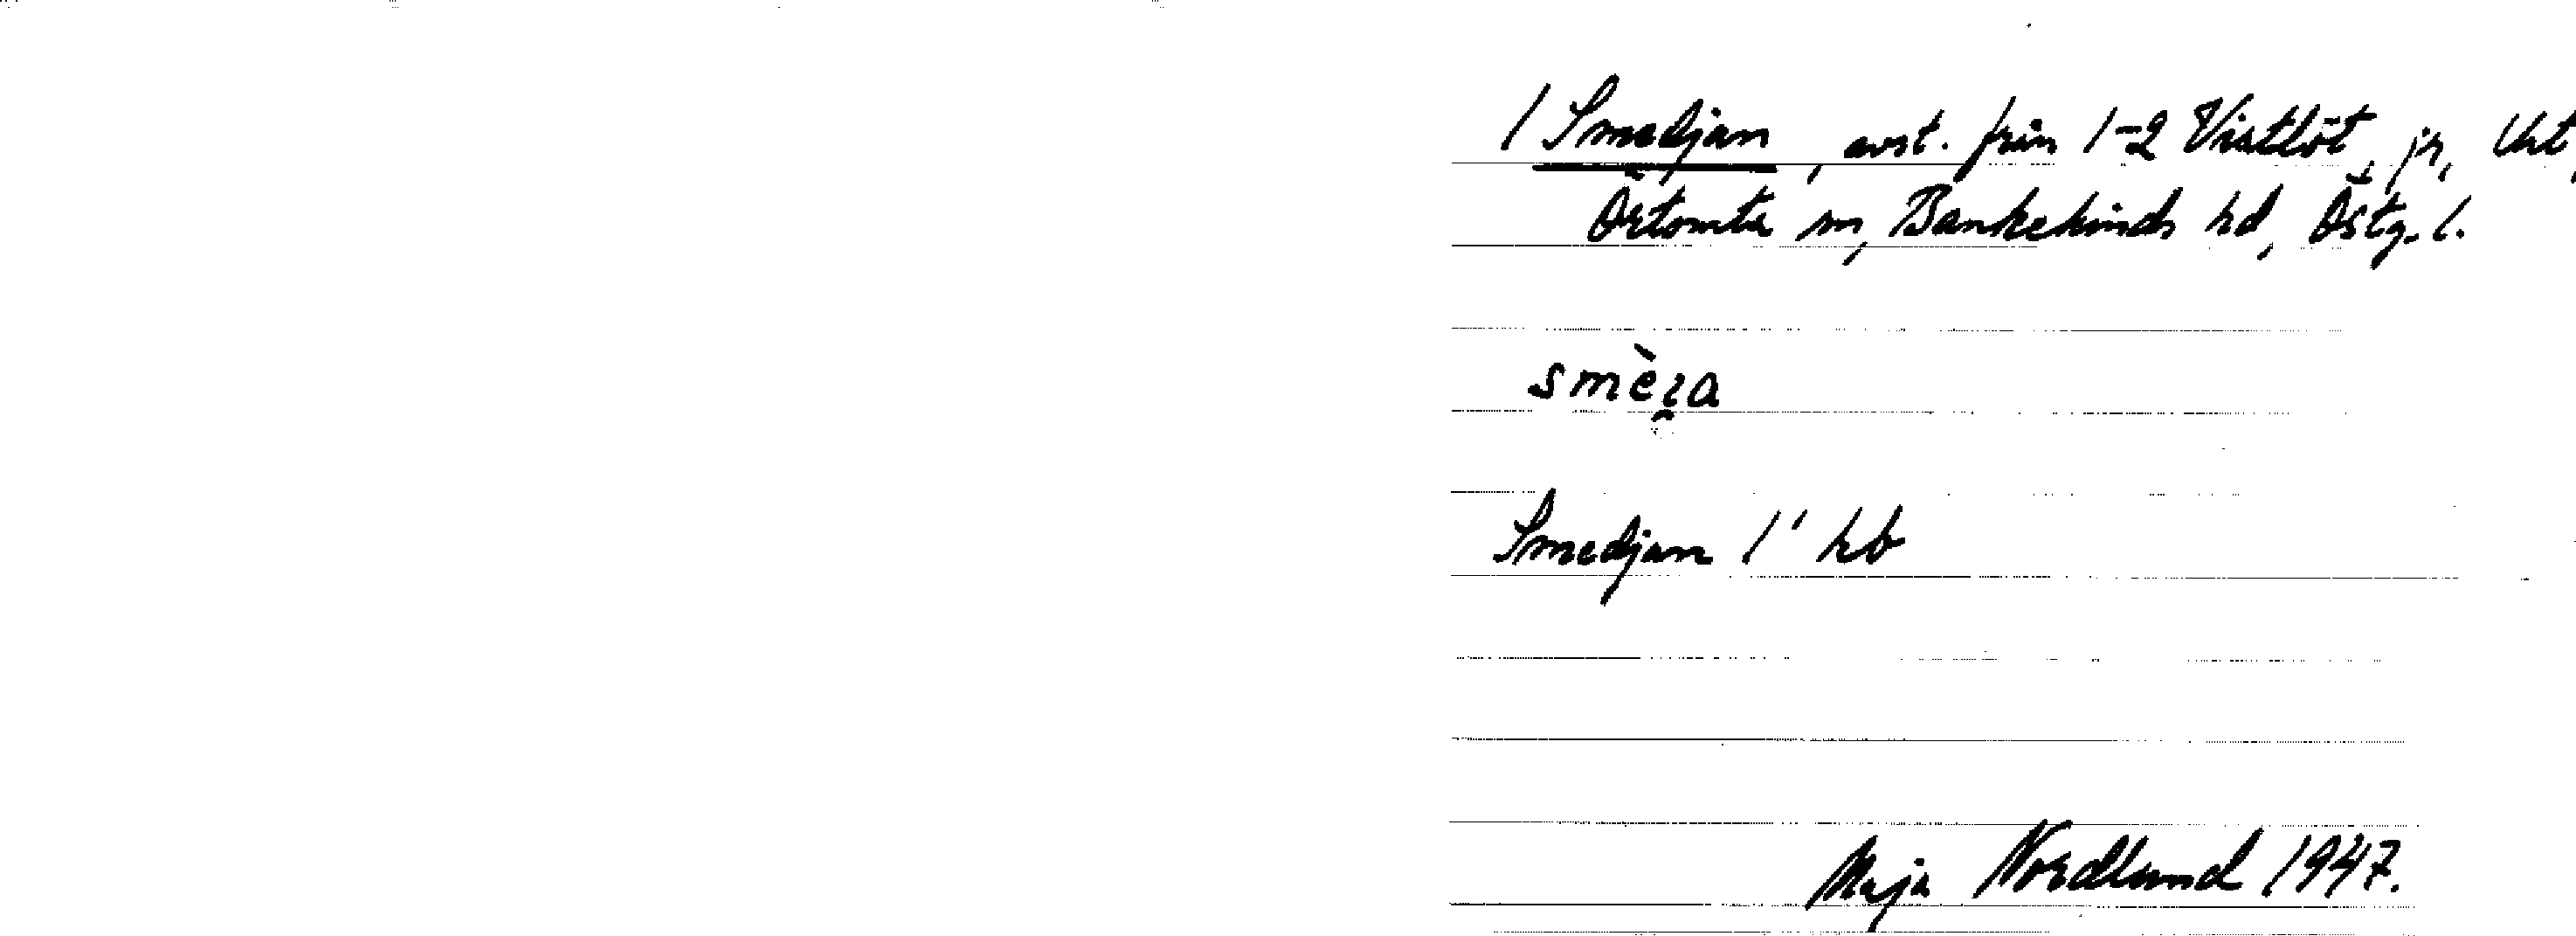 1 Smedjan, avst. från 1-2 Vistlöt, jr,
Örtomta sn, Bankekinds hd, Östg. l.
smèɿa
Smedjan 1' hb
Maja Nordlund 1947.